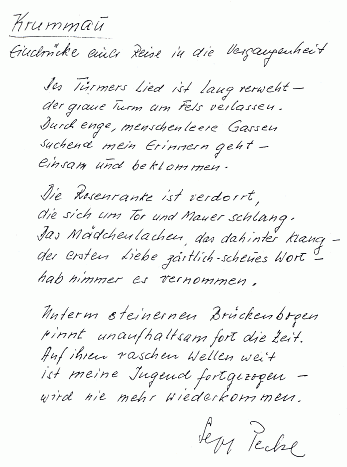 Krummau
Eindrücke einer Reise in die Vergangenheit
Des Türmers Lied ist lang verweht –
der graue Turm am Fels verlassen.
Durch enge, menschenleere Gassen
suchend mein Erinnern geht –
einsam und beklommen.
Die Rosenranke ist verdorrt,
die sich um Tor und Mauer schlang.
Das Mädchenlachen, das dahinter klang –
der ersten Liebe zärtlich-scheues Wort –
hab nimmer es vernommen.
Unterm steinernen Brückenbogen
rinnt unaufhaltsam fort die Zeit.
Auf ihren raschen Wellen weit
ist meine Jugend fortgezogen –
wird nie mehr wiederkommen.
Sepp